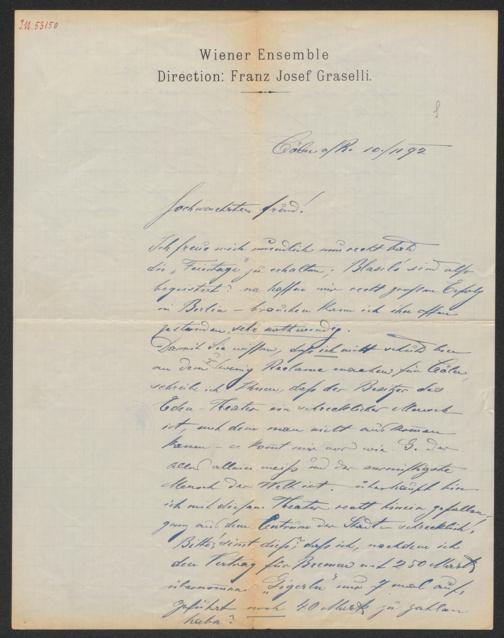 J.N. 53150
Wiener Ensemble
Direction: Franz Josef Graselli.
Cöln a/R. 10/11 92
Hochverehrter Freund!
Ich freue mich unendlich nun recht bald
die „Feiertage" zu erhalten; sind also
begeistert? na hoffen wir recht großen Erfolg
in Berlin – brauchen kann ich ihn offen
gestanden sehr nothwendig.
Damit Sie wissen, daß ich nicht schuld bin
an dem wenig Reclame machen für Cöln,
schreibe ich Ihnen, daß der Besitzer des
Eden-Theater ein schrecklicher Mensch
ist, mit dem man nicht auskommen
kann – er kommt mir vor wie G. der
alles allein weiß und der
Mensch der Welt ist. Überhaupt bin
ich mit diesem Theater hinein gefallen,
ganz aus dem Centrum der Stadt schrecklich!
Bitte, daß ich, nachdem ich
den Vertrag für Bremen mit 250 Mark
übernommen „Gigerln" und 7 mal auf-
geführt noch 40 Mark zu zahlen
habe?